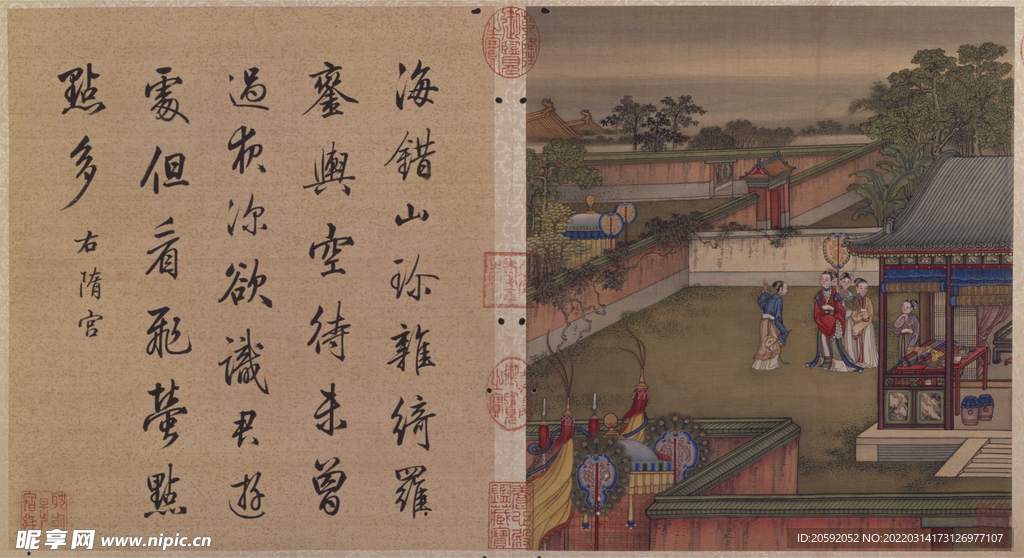 海錯山珍雜綺羅
鑾輿空待未曾
過夜深欲識君遊
處但看飛螢點
點多
右隋宮
昵享网 www.nipic.cn
ID:20592052 NO:20220314173126977107